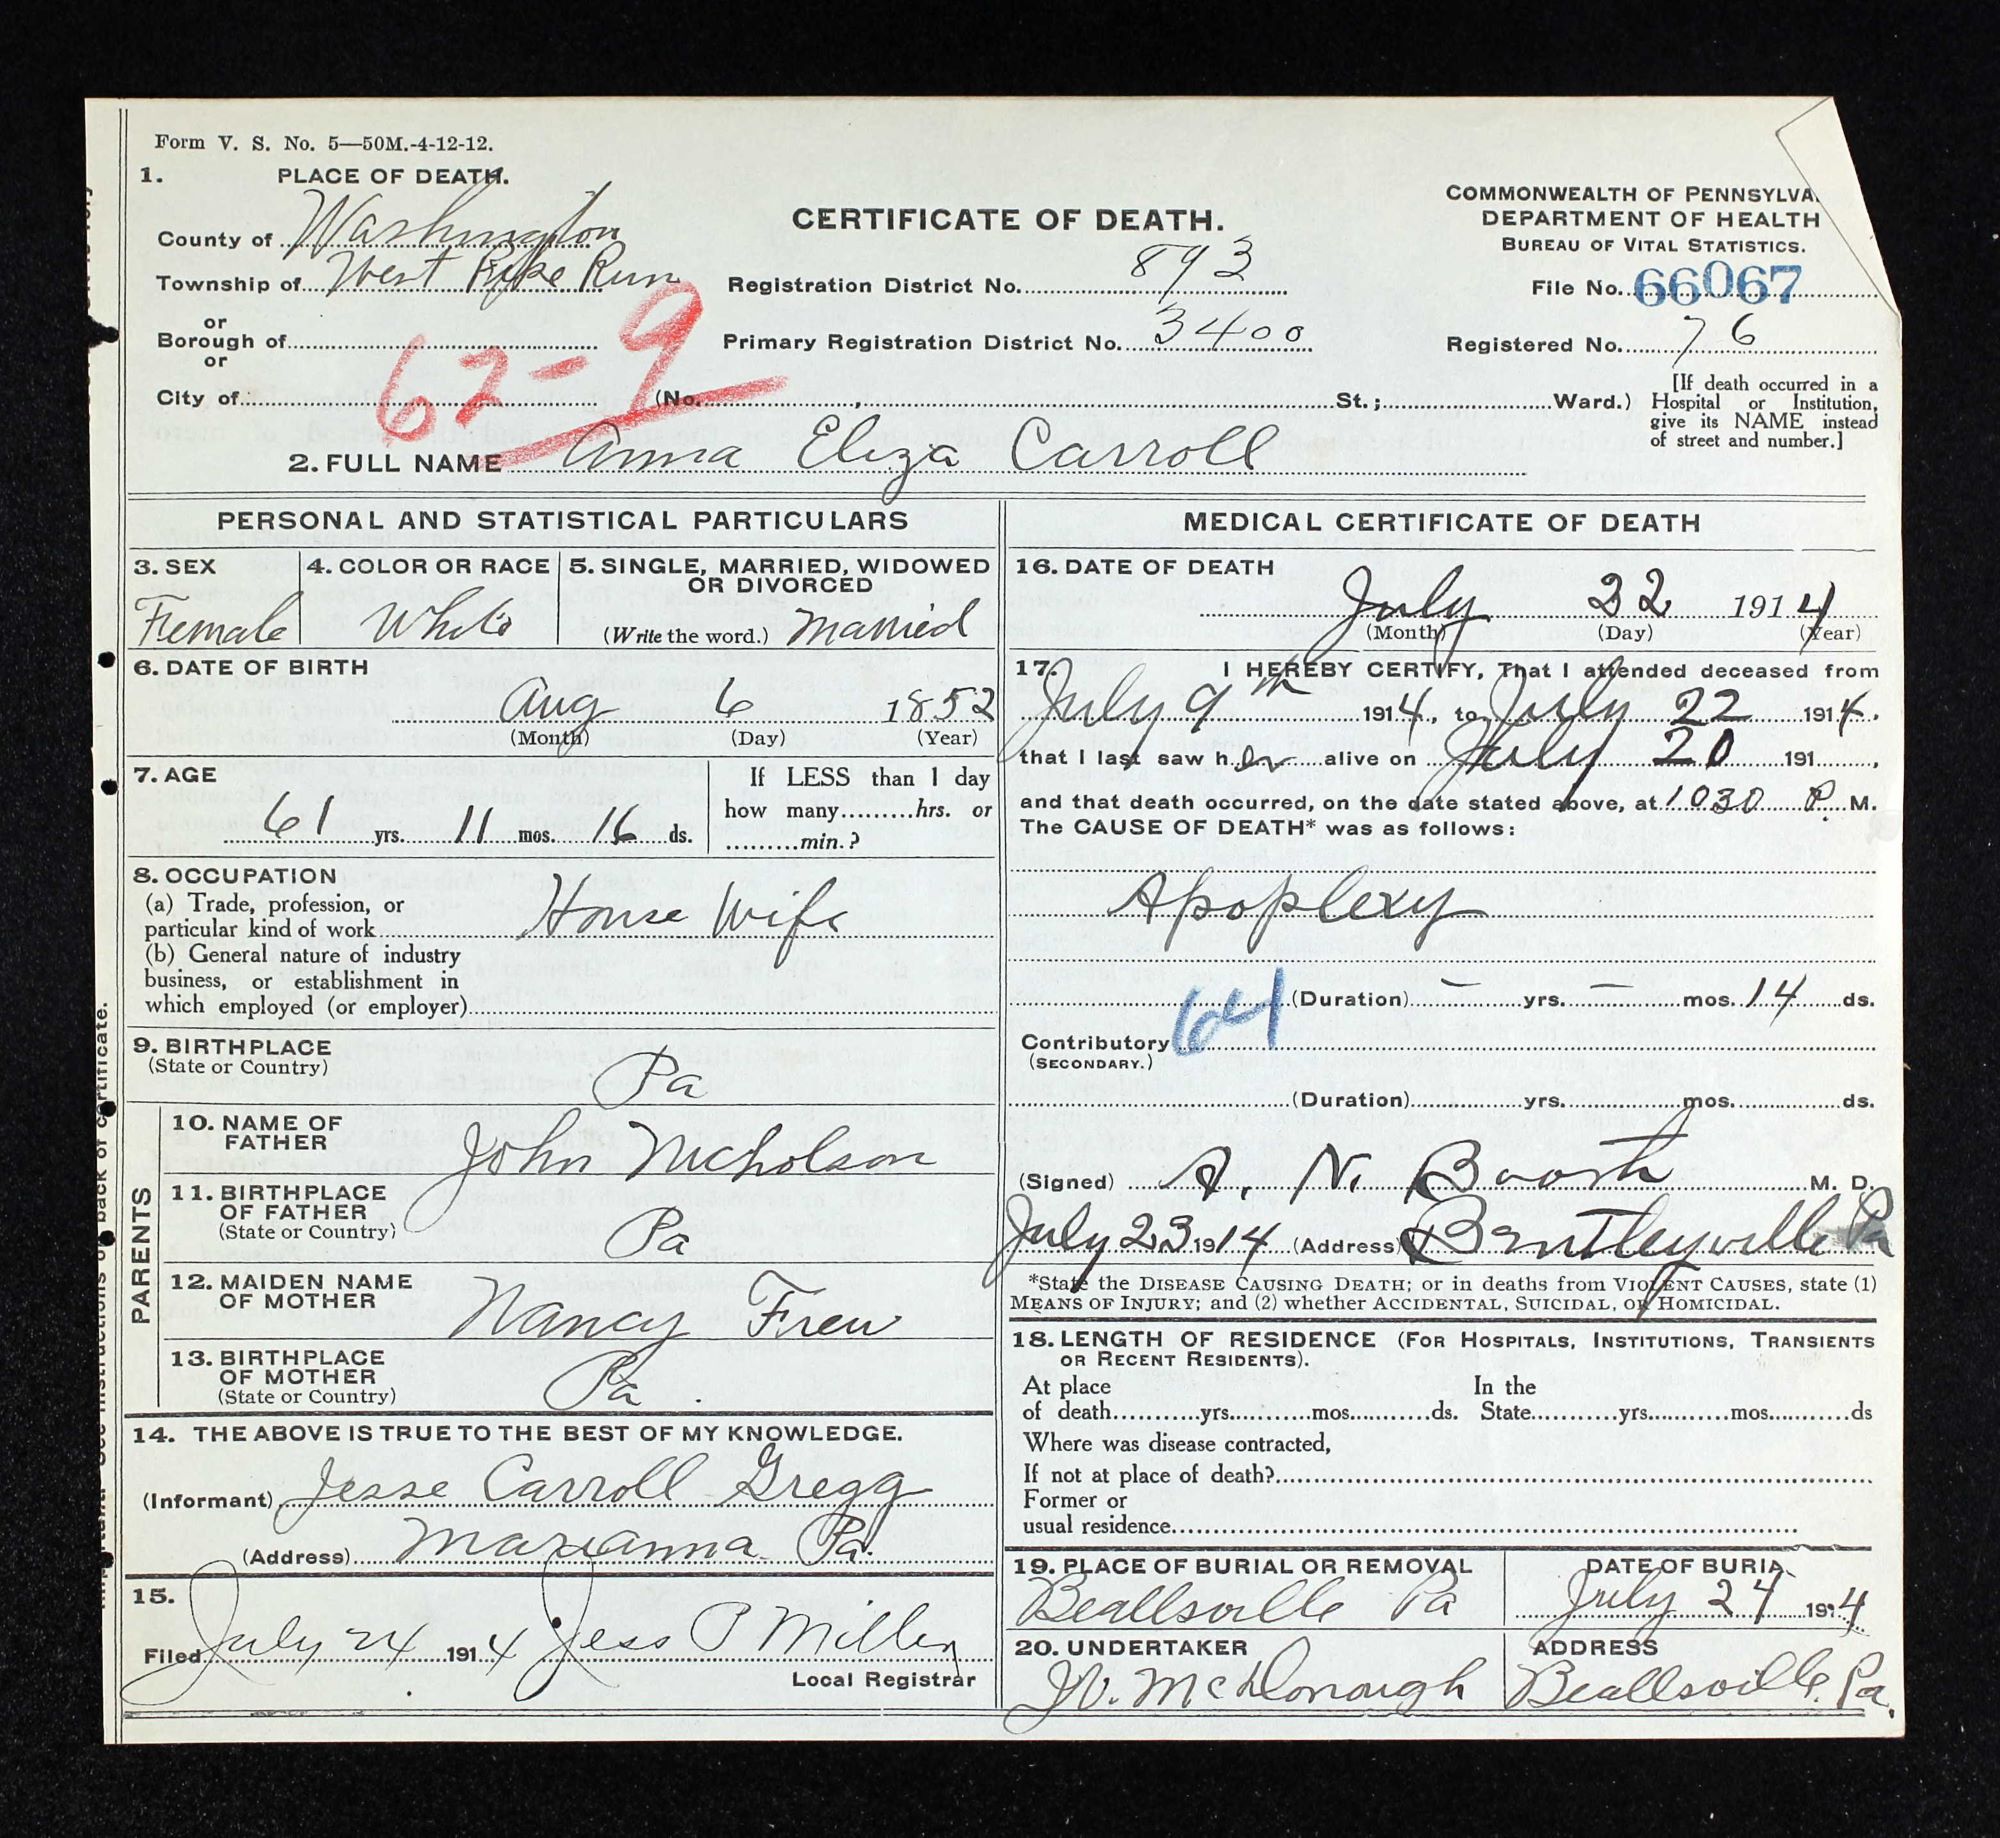 Form V. S. No. 5—50M.-4-12-12.
1. PLACE OF DEATH.
County of Washington
Township of West Pike Run
or
Borough of
or
City of
62-9
CERTIFICATE OF DEATH.
Registration District No. 893
Primary Registration District No. 3400
(No. , St.; Ward.)
COMMONWEALTH OF PENNSYLVA
DEPARTMENT OF HEALTH
BUREAU OF VITAL STATISTICS.
File No. 66067
Registered No. 76
[If death occurred in a
Hospital or Institution,
give its NAME instead
of street and number.]
2. FULL NAME Anna Eliza Carroll
PERSONAL AND STATISTICAL PARTICULARS
3. SEX
Female
4. COLOR OR RACE
White
5. SINGLE, MARRIED, WIDOWED
OR DIVORCED
(Write the word.) Married
6. DATE OF BIRTH
Aug 6 1852
(Month) (Day) (Year)
7. AGE
61 yrs. 11 mos. 16 ds.
If LESS than 1 day
how many hrs. or
min.?
8. OCCUPATION
(a) Trade, profession, or
particular kind of work House Wife
(b) General nature of industry
business, or establishment in
which employed (or employer)
9. BIRTHPLACE
(State or Country) Pa
PARENTS
10. NAME OF
FATHER John Nicholson
11. BIRTHPLACE
OF FATHER
(State or Country) Pa
12. MAIDEN NAME
OF MOTHER Nancy Frew
13. BIRTHPLACE
OF MOTHER
(State or Country) Pa.
14. THE ABOVE IS TRUE TO THE BEST OF MY KNOWLEDGE.
(Informant) Jesse Carroll Gregg
(Address) Marianna Pa.
15.
Filed July 24 1914 Jess P Miller
Local Registrar
MEDICAL CERTIFICATE OF DEATH
16. DATE OF DEATH
July 22 1914
(Month) (Day) (Year)
17. I HEREBY CERTIFY, That I attended deceased from
July 9th 1914, to July 22 1914,
that I last saw her alive on July 20 191 ,
and that death occurred, on the date stated above, at 1030 P. M.
The CAUSE OF DEATH* was as follows:
Apoplexy
(Duration) – yrs. – mos. 14 ds.
Contributory 64
(SECONDARY.)
(Duration) yrs. mos. ds.
(Signed) A. N. Booth M. D.
July 23 1914 (Address) Bentleyville Pa
*State the DISEASE CAUSING DEATH; or in deaths from VIOLENT CAUSES, state (1)
MEANS OF INJURY; and (2) whether ACCIDENTAL, SUICIDAL, OR HOMICIDAL.
18. LENGTH OF RESIDENCE (FOR HOSPITALS, INSTITUTIONS, TRANSIENTS
OR RECENT RESIDENTS).
At place In the
of death yrs. mos. ds. State yrs. mos. ds
Where was disease contracted,
If not at place of death?
Former or
usual residence
19. PLACE OF BURIAL OR REMOVAL
Beallsville Pa
DATE OF BURIA
July 24 1914
20. UNDERTAKER
W. McDonough
ADDRESS
Beallsville, Pa.
See instructions on back of certificate.